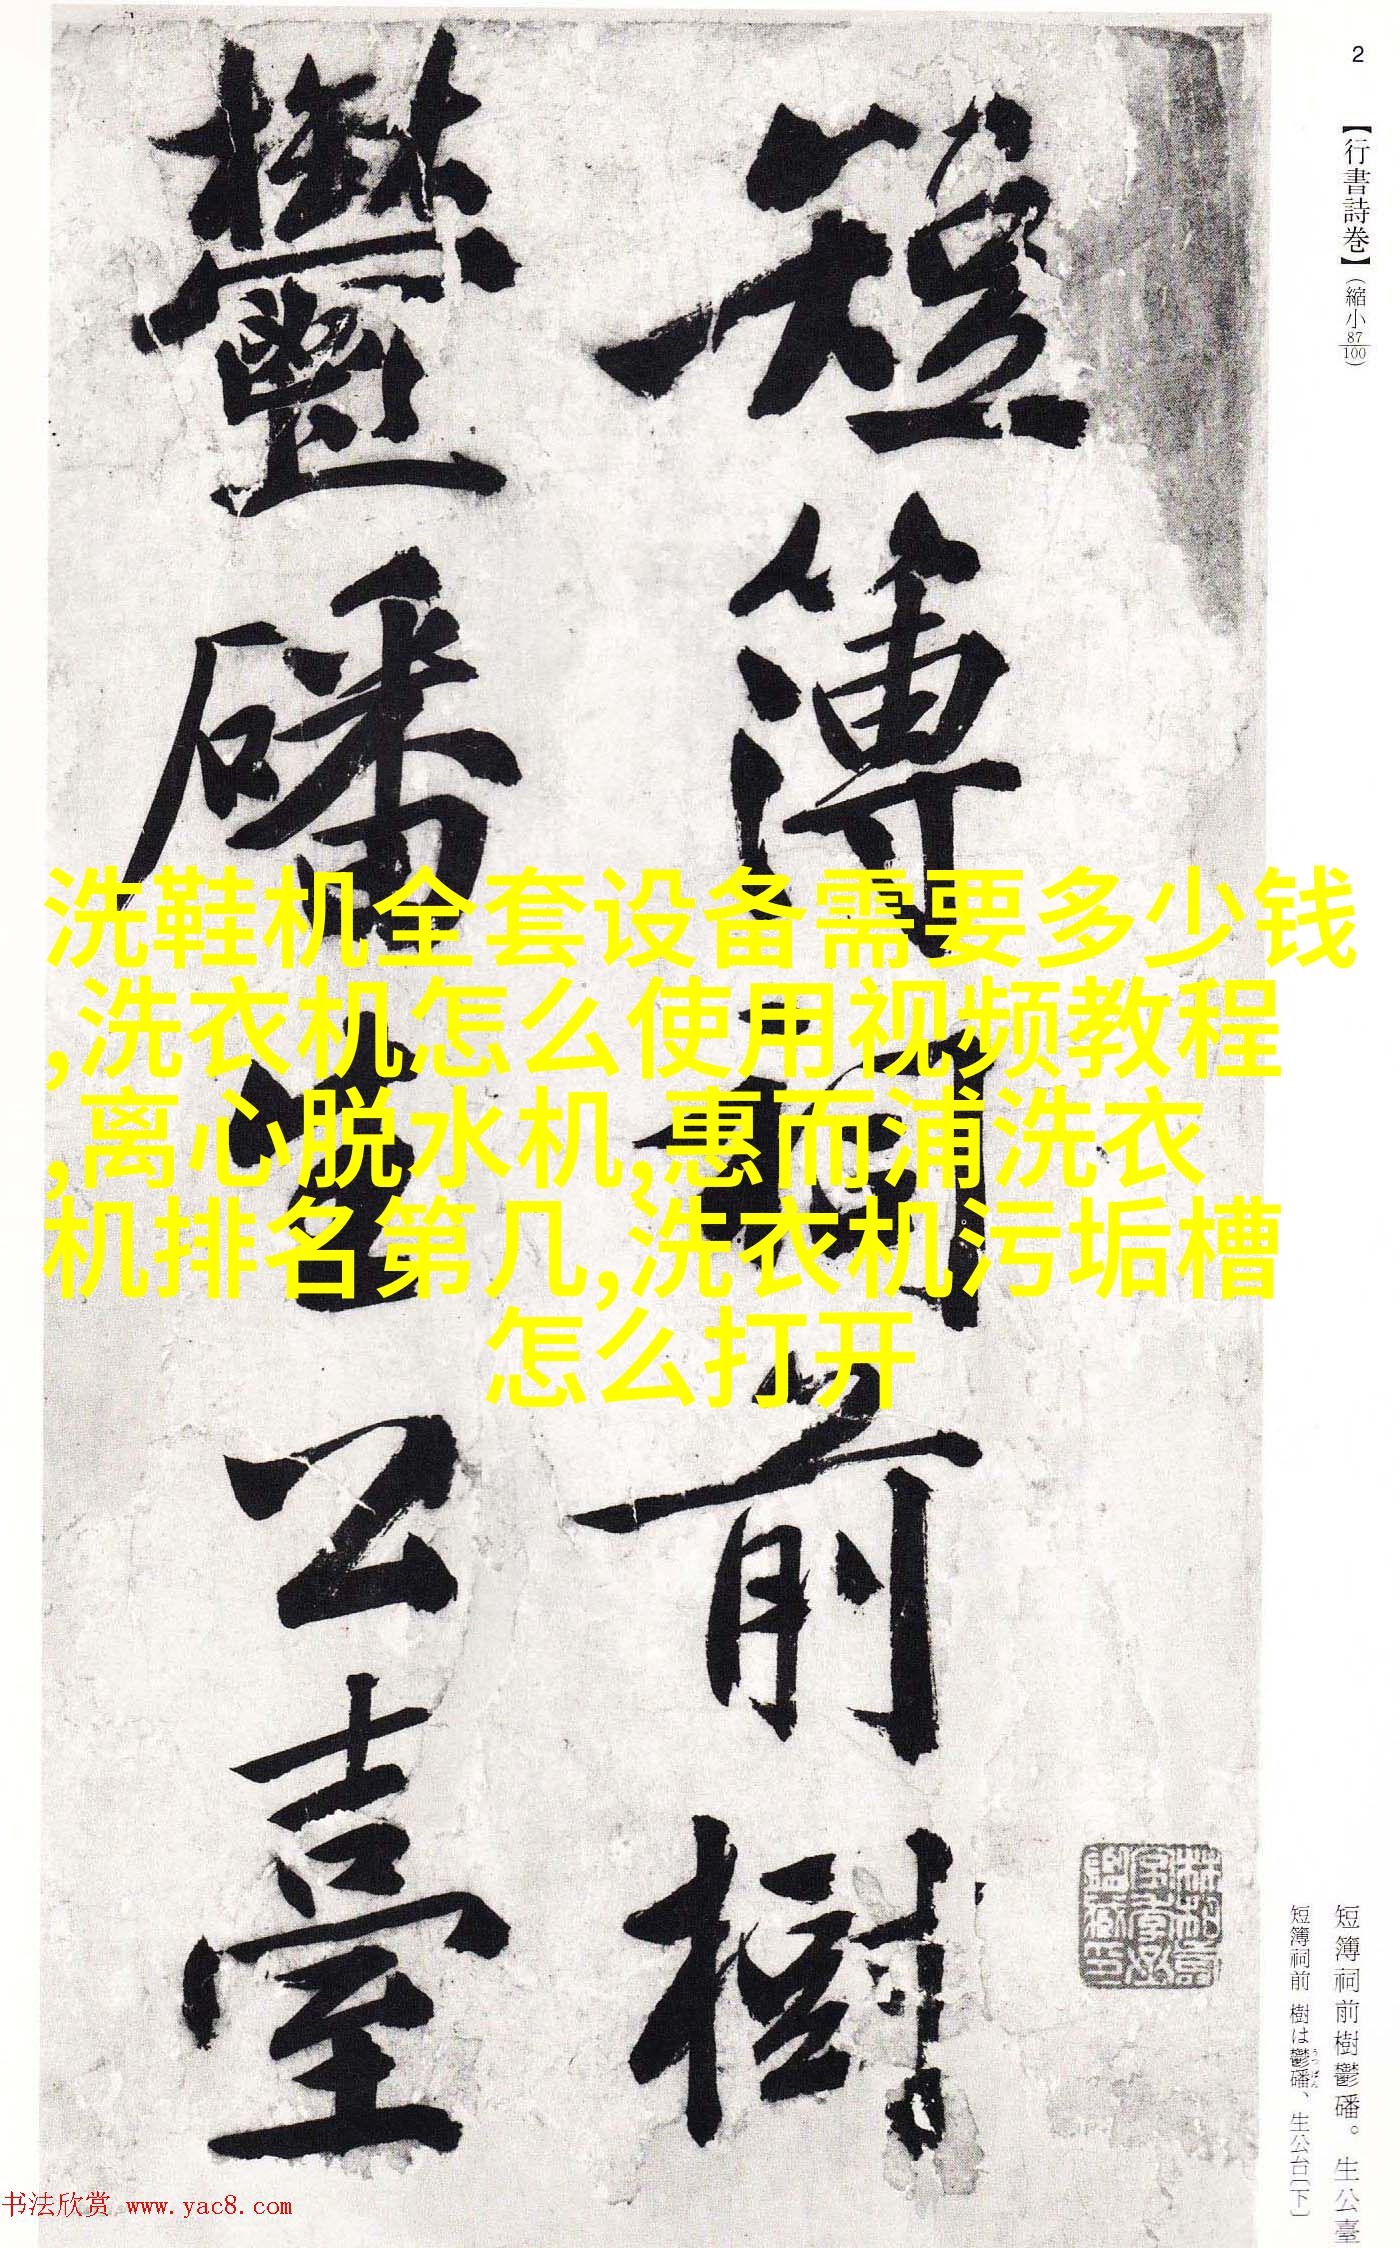 2
【行書詩巻】（縮小87/100）
短簿祠前樹
鬱磻生公臺
洗鞋机全套设备需要多少钱
,洗衣机怎么使用视频教程
,离心脱水机,惠而浦洗衣
机排名第几,洗衣机污垢槽
怎么打开
短簿祠前樹鬱磻。生公臺
短簿祠前 樹は鬱磻、生公台〔下〕
うっぱん
书法欣赏 www.yac8.com